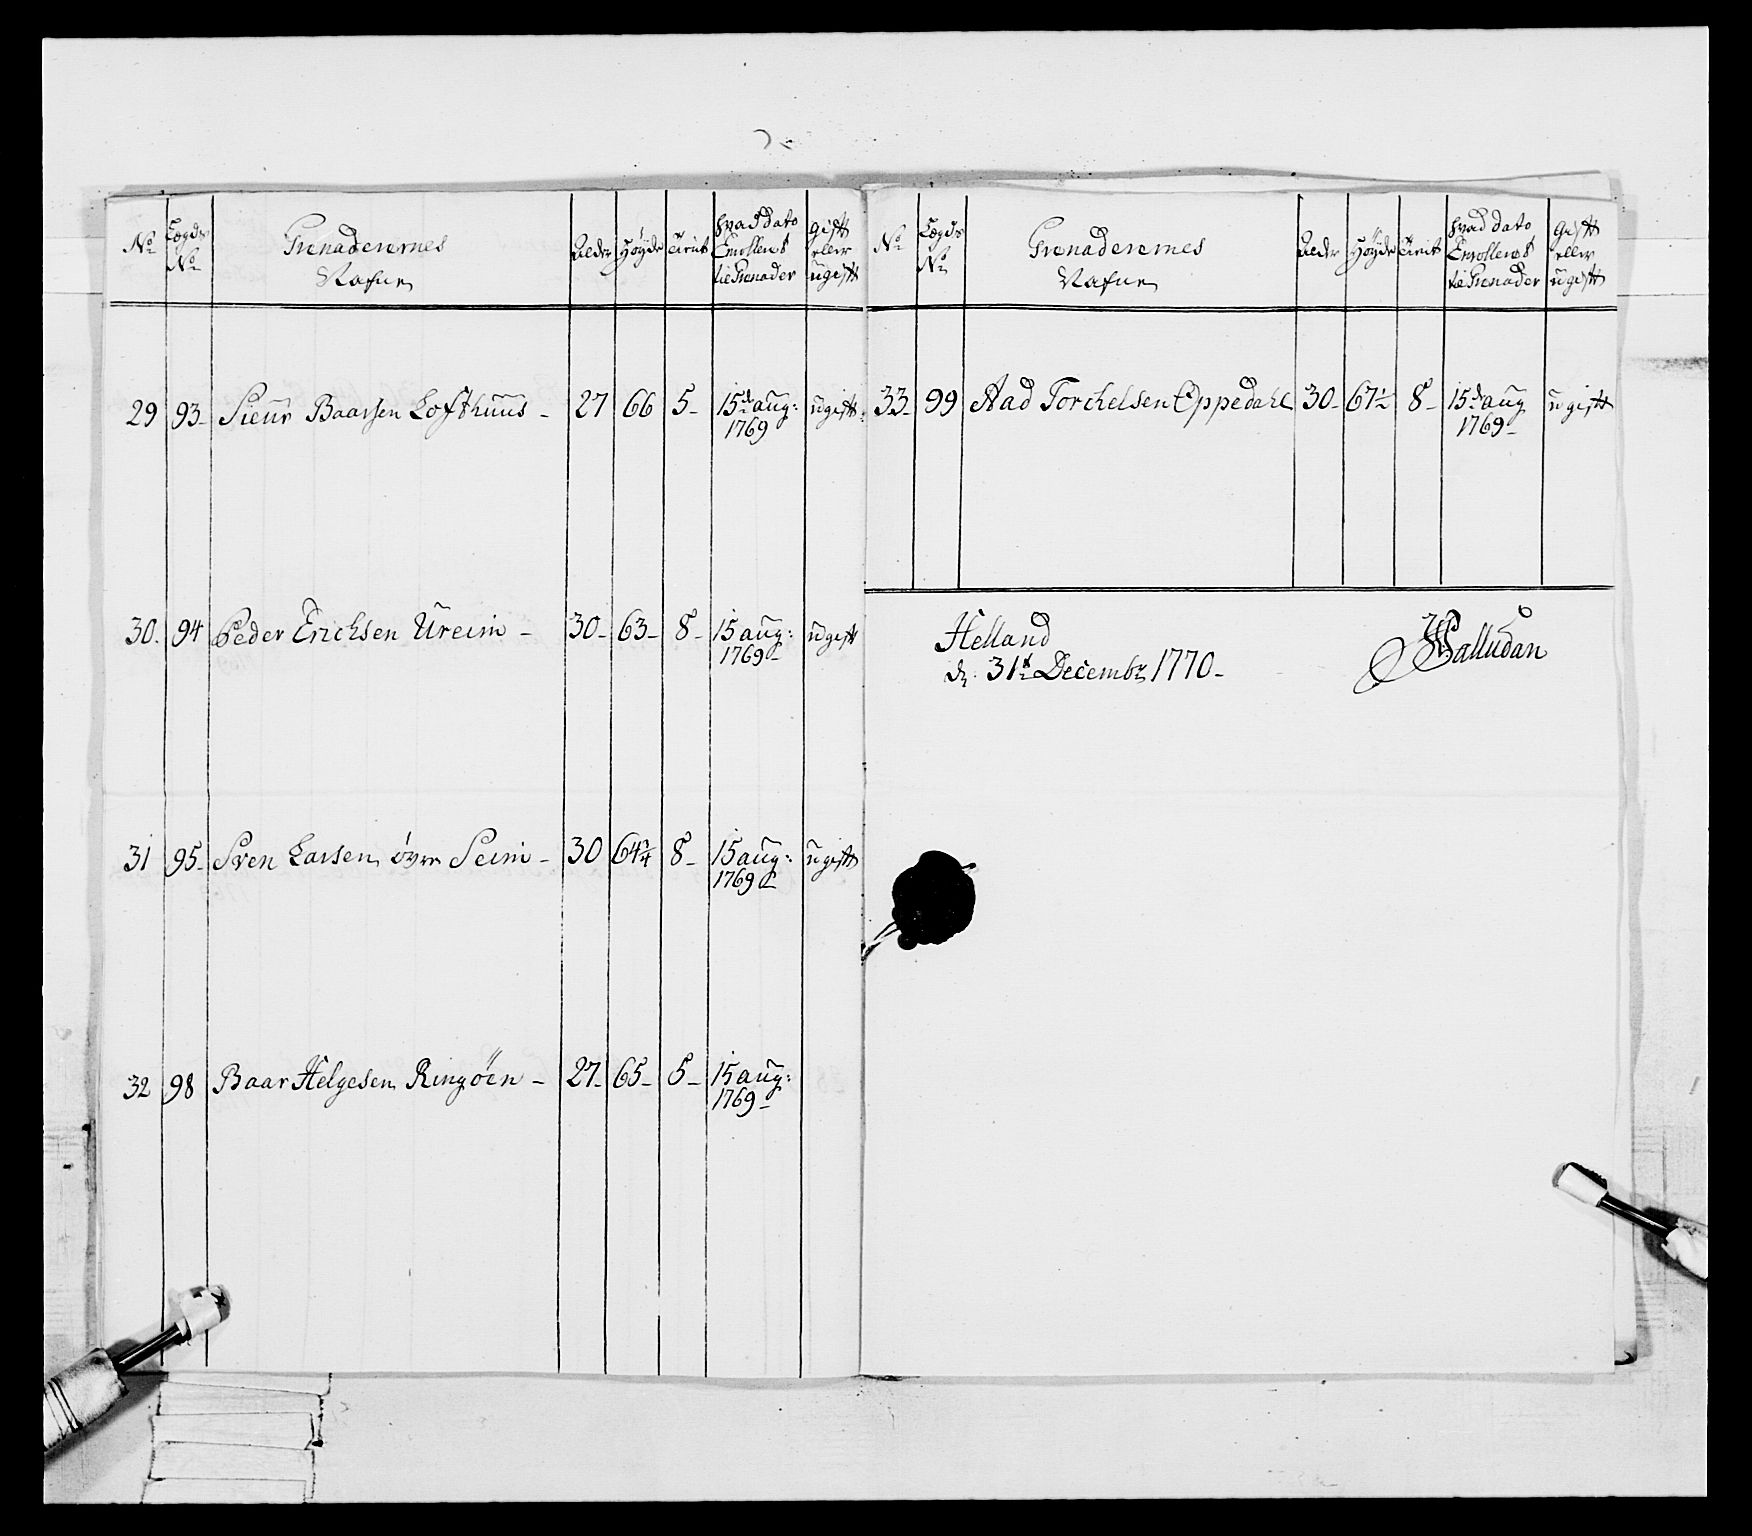 No Lægds No Grenaderernes Nafne Alder Høyde Tienist hvad dato Enrollerет til Grenader Gift eller ugift
29 93 Sieur Baarsen Lofthuus 27 66 5 15de aug: 1769 ugift
30. 94 Peder Erichsen Ureim 30 63 8 15 aug: 1769 ugift
31 95 Sven Larsen øvre Seim 30 64 3/4 8 15 aug: 1769 ugift
32 98 Baar Helgesen Ringøen 27 65 5 15 aug: 1769
No Lægds No Grenaderernes Nafne Alder Høyde Tienist hvad dato Enrolleret til Grenader Gift eller ugift
33 99 Aad Torchelsen Oppedahl 30 67 1/2 8 15de aug 1769 ugift
Helland
d: 31te Decembr 1770
Palludan